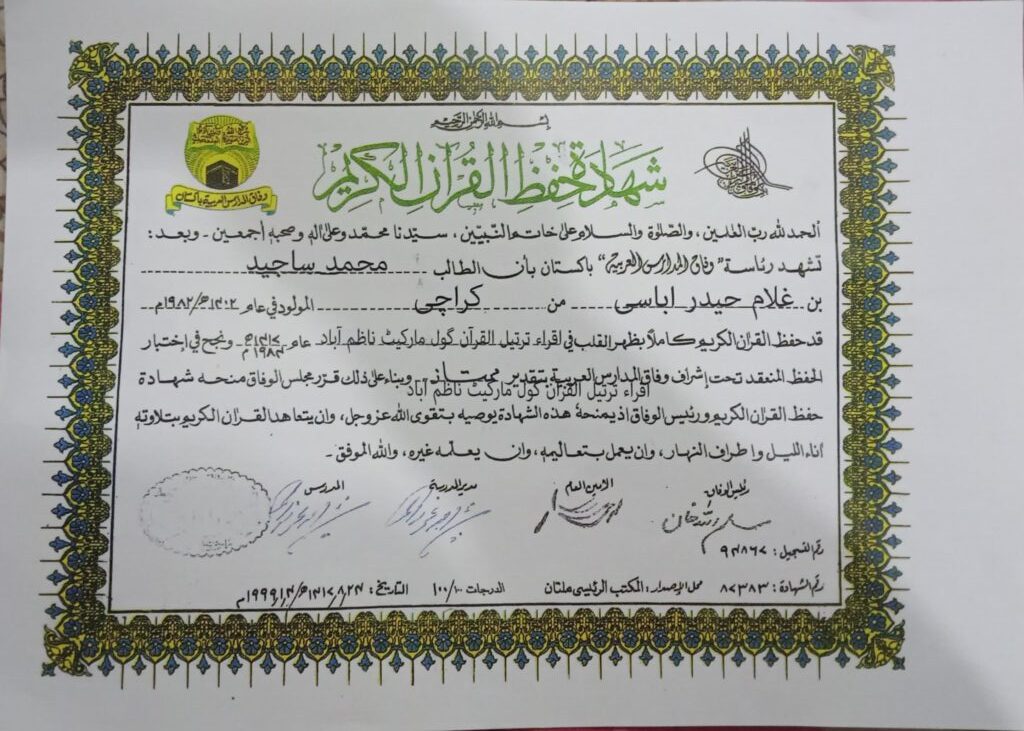 بسم الله الرحمن الرحيم
شهادة حفظ القرآن الكريم
وفاق المدارس العربية باكستان
الحمد لله رب العلمين، والصلوة والسلام على خاتم النبيين، سيدنا محمد وعلى اله وصحبه أجمعين۔ وبعد:
تشهد رئاسة "وفاق المدارس العربية" باكستان بأن الطالب محمد ساجید
بن غلام حیدر اباسی من کراچی المولود في عام ۱۴۰۲ھ/۱۹۸۲م
قد حفظ القران الكريم كاملاً بظهر القلب في اقراء ترتیل القرآن گول مارکیٹ ناظم آباد عام ونجح في إختبار
الحفظ المنعقد تحت إشراف وفاق المدارس العربية بتقدير ممتاز وبناء على ذلك قرر مجلس الوفاق منحه شهادة
اقراء ترتیل القرآن گول مارکیٹ ناظم آباد
حفظ القران الكريم ورئيس الوفاق اذ يمنحه هذه الشهادة يوصيه بتقوى الله عز وجل، وان يتعاهد القران الكريم بتلاوته
اناء الليل واطراف النهار، وان يعمل بتعاليمه، وان يعلمه غيره، والله الموفق۔
رئيس الوفاق الامين العام مدير المدرسة المدرس
رقم التسجيل: ۹۴۸۶۷
رقم الشهادة: ۸۷۳۸۳ محل الإصدار: المكتب الرئيسي ملتان الدرجات ۱۰۰/۱۰۰ التاريخ: